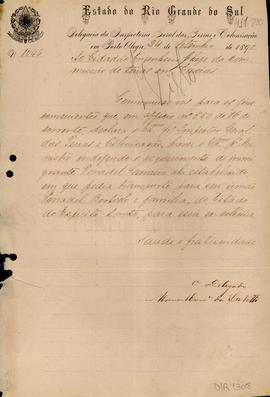 Estado do Rio Grande do Sul
Delegacia da Inspectoria Geral das Terras e Colonisação
em Porto Alegre, 24 de Setembro de 1892
Nº 1046
Ao Cidadão Engenheiro Chefe da Com
missão de terras em
Communico-vos para os fins
convenientes que, em officio nº de 16 do
corrente, declara o Inspector Geral
das Terras e Colonisação, haver o Mi
nistro indeferido o requerimento do immi
grante ahi estabelecido,
em que pedia transporte para seu irmão
e familia, do Estado
do Espirito Santo, para essa colonia
Saude e fraternidade
O Delegado
DIR 1308